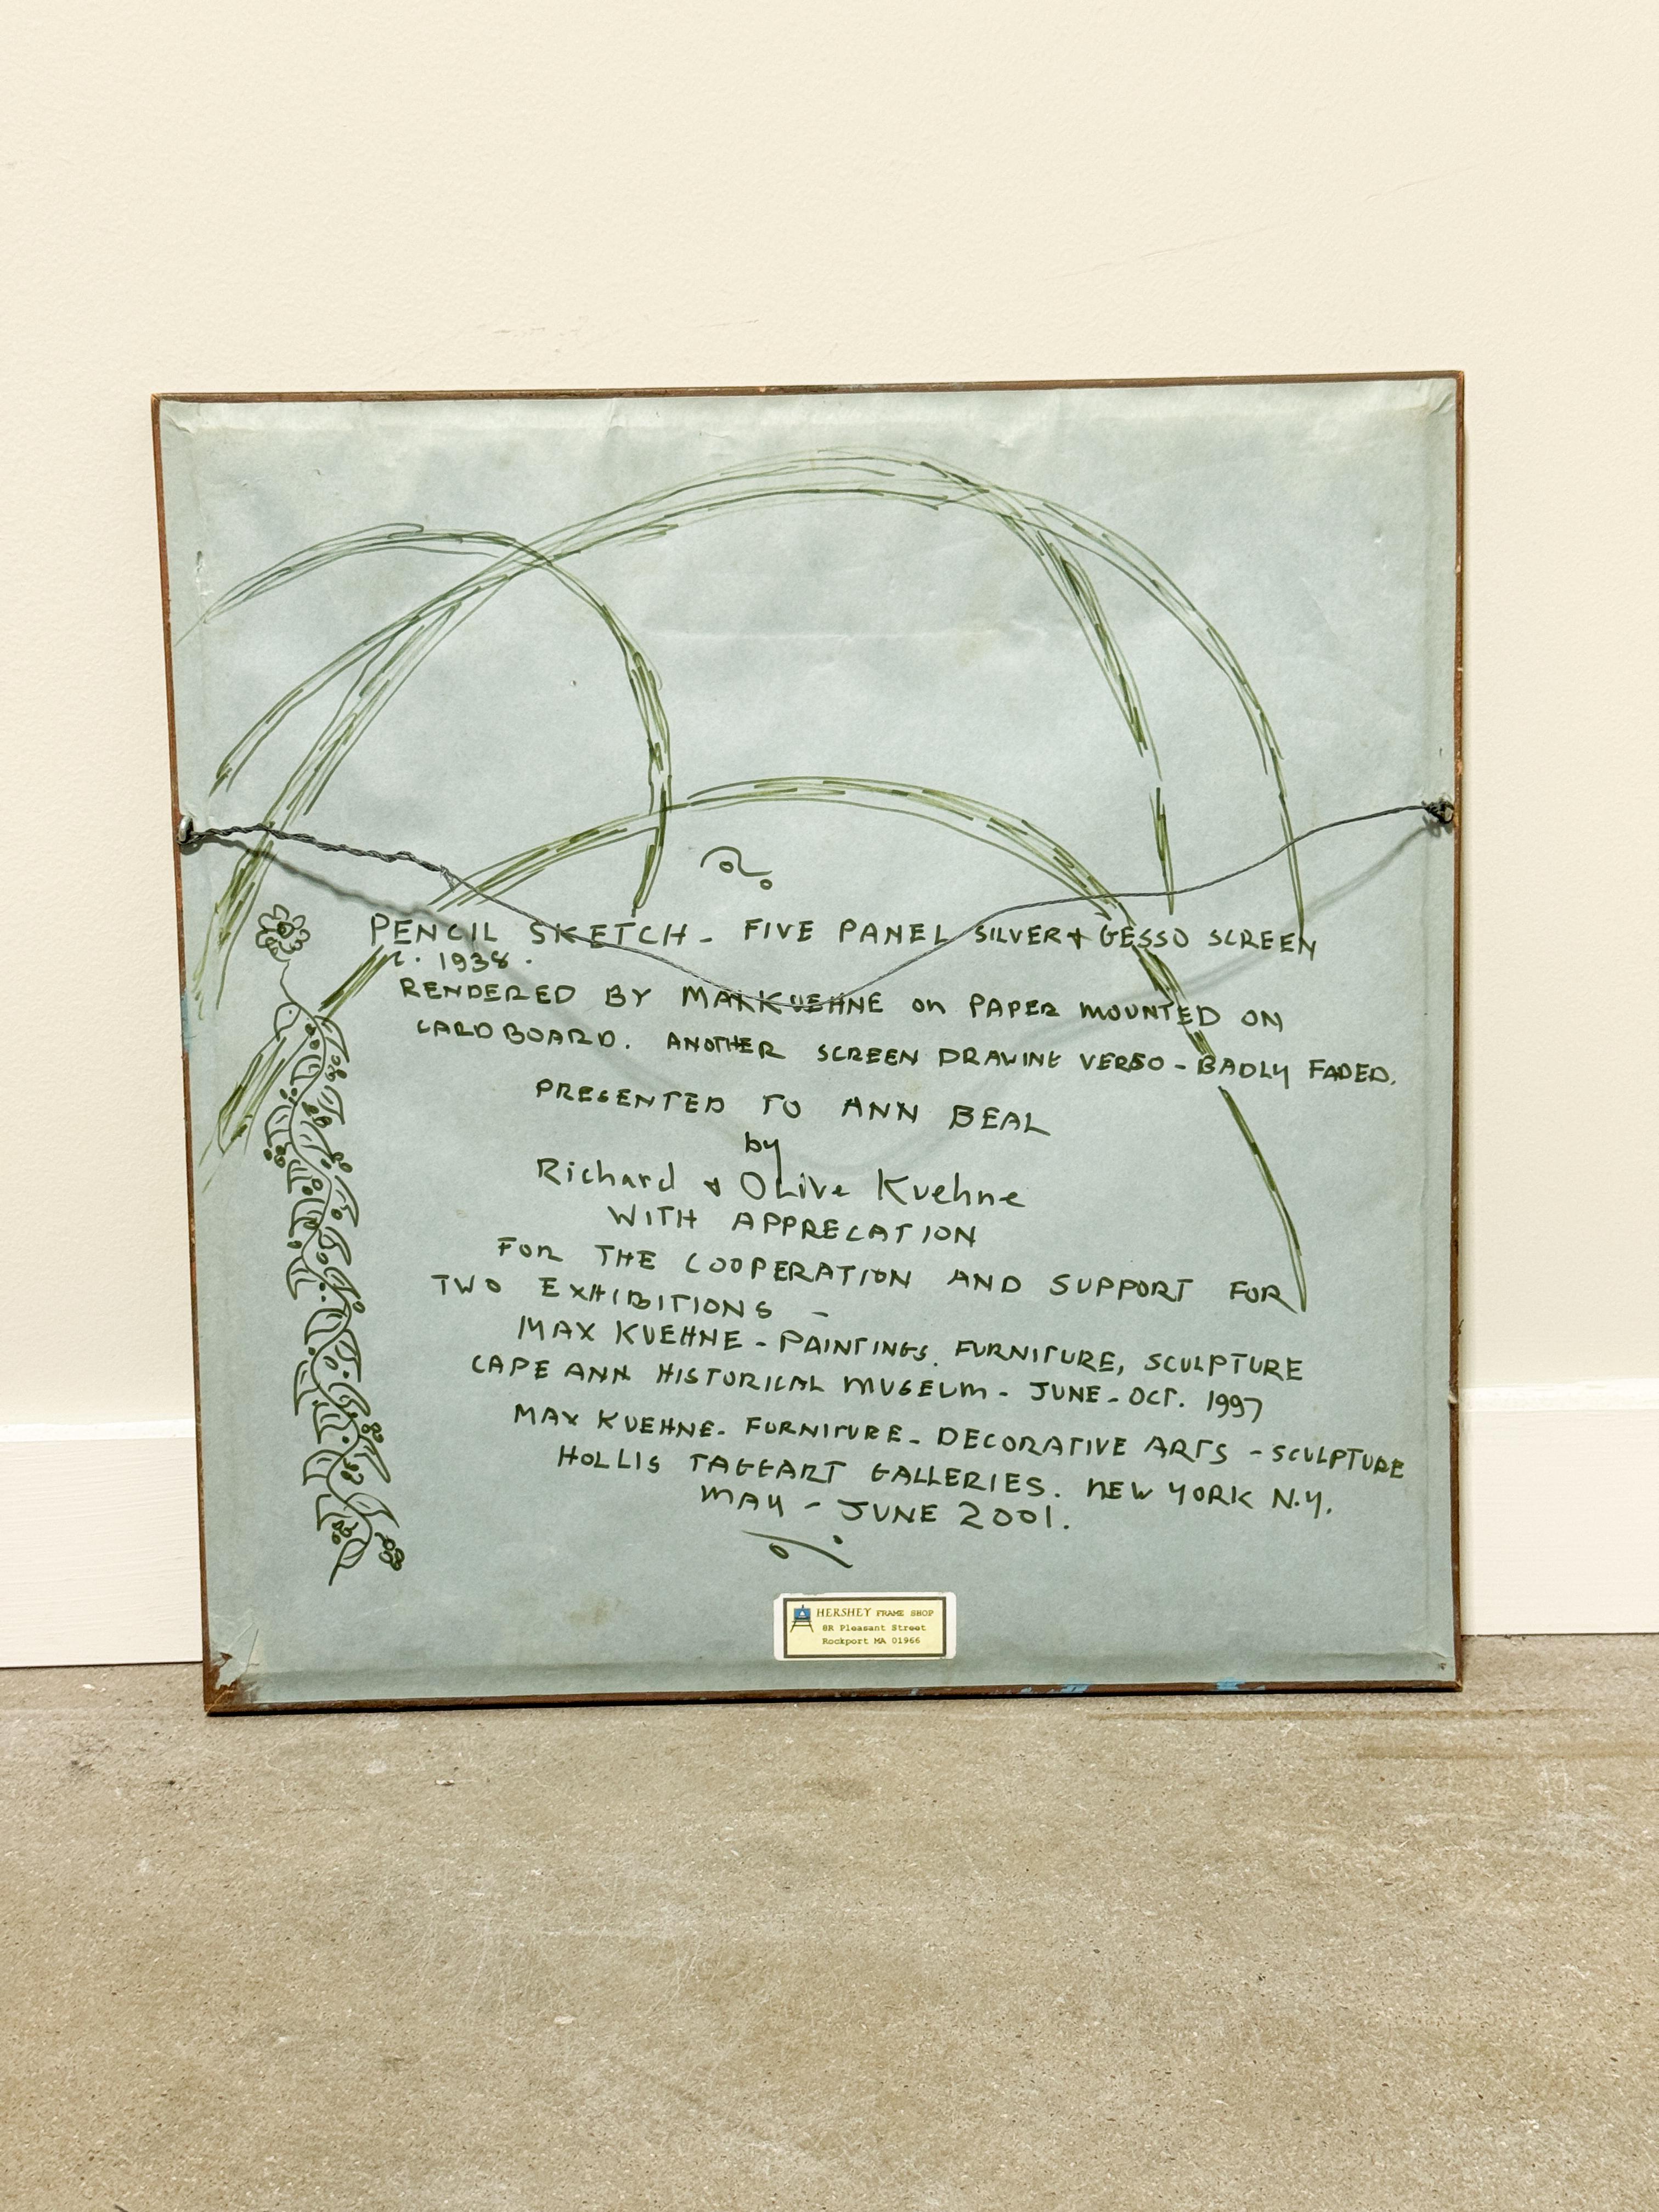 PENCIL SKETCH - FIVE PANEL SILVER + GESSO SCREEN
c. 1938.
RENDERED BY MAX KUEHNE on PAPER MOUNTED ON
CARDBOARD. ANOTHER SCREEN DRAWING VERSO - BADLY FADED.
PRESENTED TO ANN BEAL
by
Richard & Olive Kuehne
WITH APPRECATION
FOR THE COOPERATION AND SUPPORT FOR
TWO EXHIBITIONS -
MAX KUEHNE - PAINTINGS. FURNITURE, SCULPTURE
CAPE ANN HISTORICAL MUSEUM - JUNE - OCT. 1997
MAX KUEHNE. FURNITURE - DECORATIVE ARTS - SCULPTURE
HOLLIS TAGGART GALLERIES. NEW YORK N.Y.
MAY - JUNE 2001.
HERSHEY FRAME SHOP
8R Pleasant Street
Rockport MA 01966